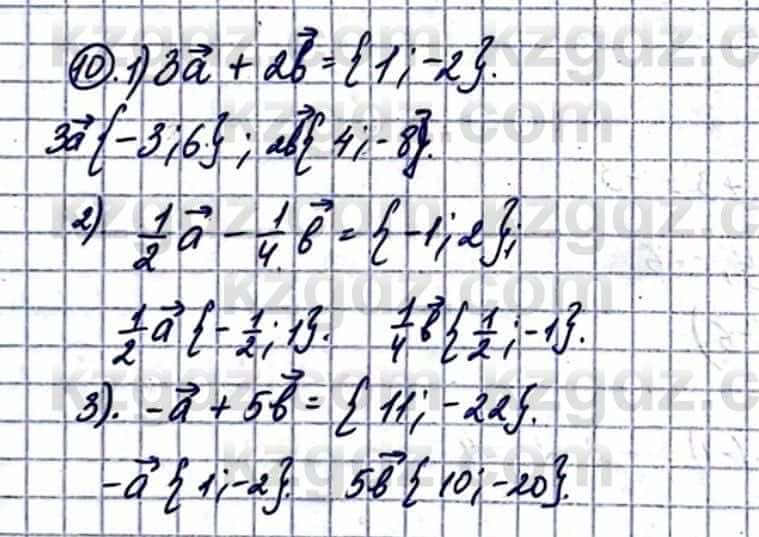 10. 1) 3a⃗ + 2b⃗ = {1; -2}.
3a⃗ {-3; 6}; 2b⃗ {4; -8}.
2) 1/2 a⃗ - 1/4 b⃗ = {-1; 2};
1/2 a⃗ {-1/2; 1}. 1/4 b⃗ {1/2; -1}.
3). -a⃗ + 5b⃗ = {11; -22}.
-a⃗ {1; -2}. 5b⃗ {10; -20}.
kzgdz.com